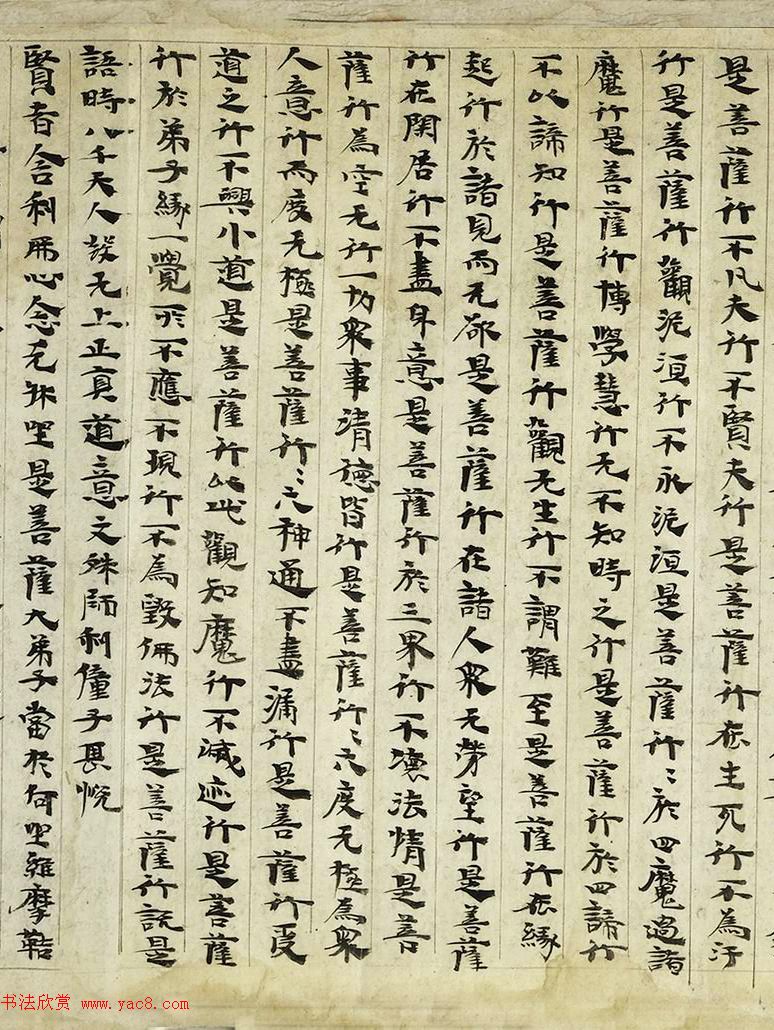 是菩薩行不凡夫行不賢夫行是菩薩行在生死行不為汙
行是菩薩行觀泥洹行不永泥洹是菩薩行〻於四魔過諸
魔行是菩薩行博學慧行无不知時之行是菩薩行於四諦行
不以諦知行是菩薩行觀无生行不謂難至是菩薩行在緣
起行於諸見而无欲是菩薩行在諸人眾无勞望行是菩薩
行在閑居行不盡身意是菩薩行於三界行不壞法情是菩
薩行為空无行一切眾事清德皆行是菩薩行〻六度无極為眾
人意行而度无極是菩薩行〻六神通不盡漏行是菩薩行受
道之行不興小道是菩薩行以此觀知魔行不滅迹行是菩薩
行於弟子緣一覺所不應不現行不為毀佛法行是菩薩行說是
語時八千天人發无上正真道意文殊師利僮子甚悅
賢者舍利弗心念无牀坐是菩薩大弟子當於何坐維摩詰
书法欣赏 www.yac8.com